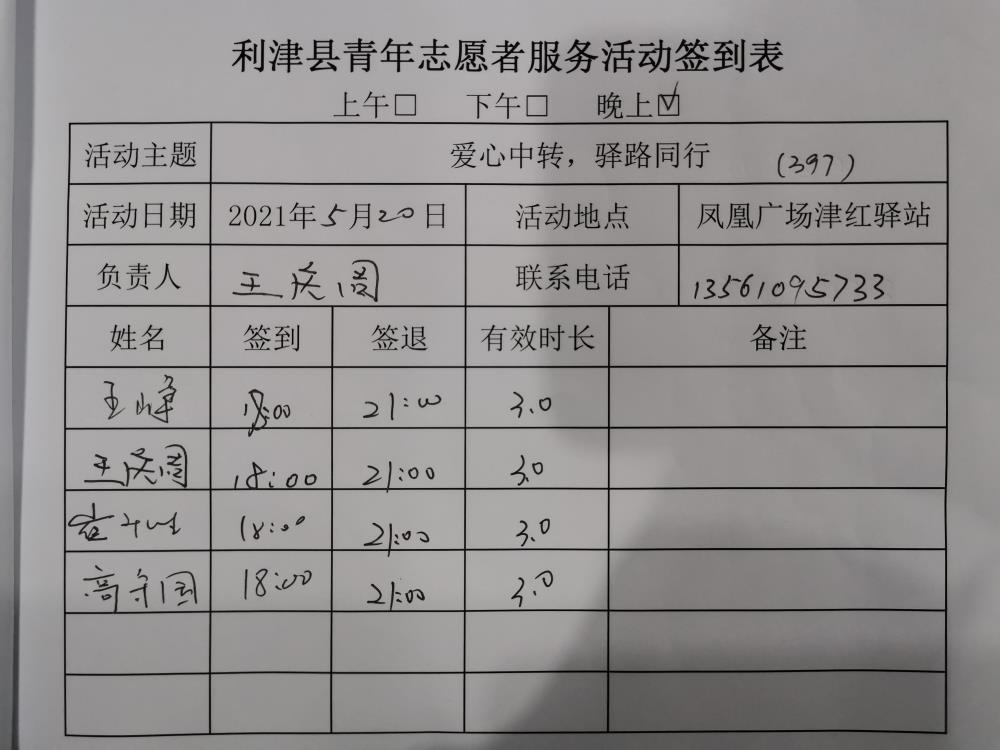 利津县青年志愿者服务活动签到表
上午□ 下午□ 晚上☑
活动主题 爱心中转，驿路同行 (397)
活动日期 2021年5月20日 活动地点 凤凰广场津红驿站
负责人 王庆阁 联系电话 13561095733
姓名 签到 签退 有效时长 备注
王峥 18:00 21:00 3.0
王庆阁 18:00 21:00 3.0
18:00 21:00 3.0
高守国 18:00 21:00 3.0